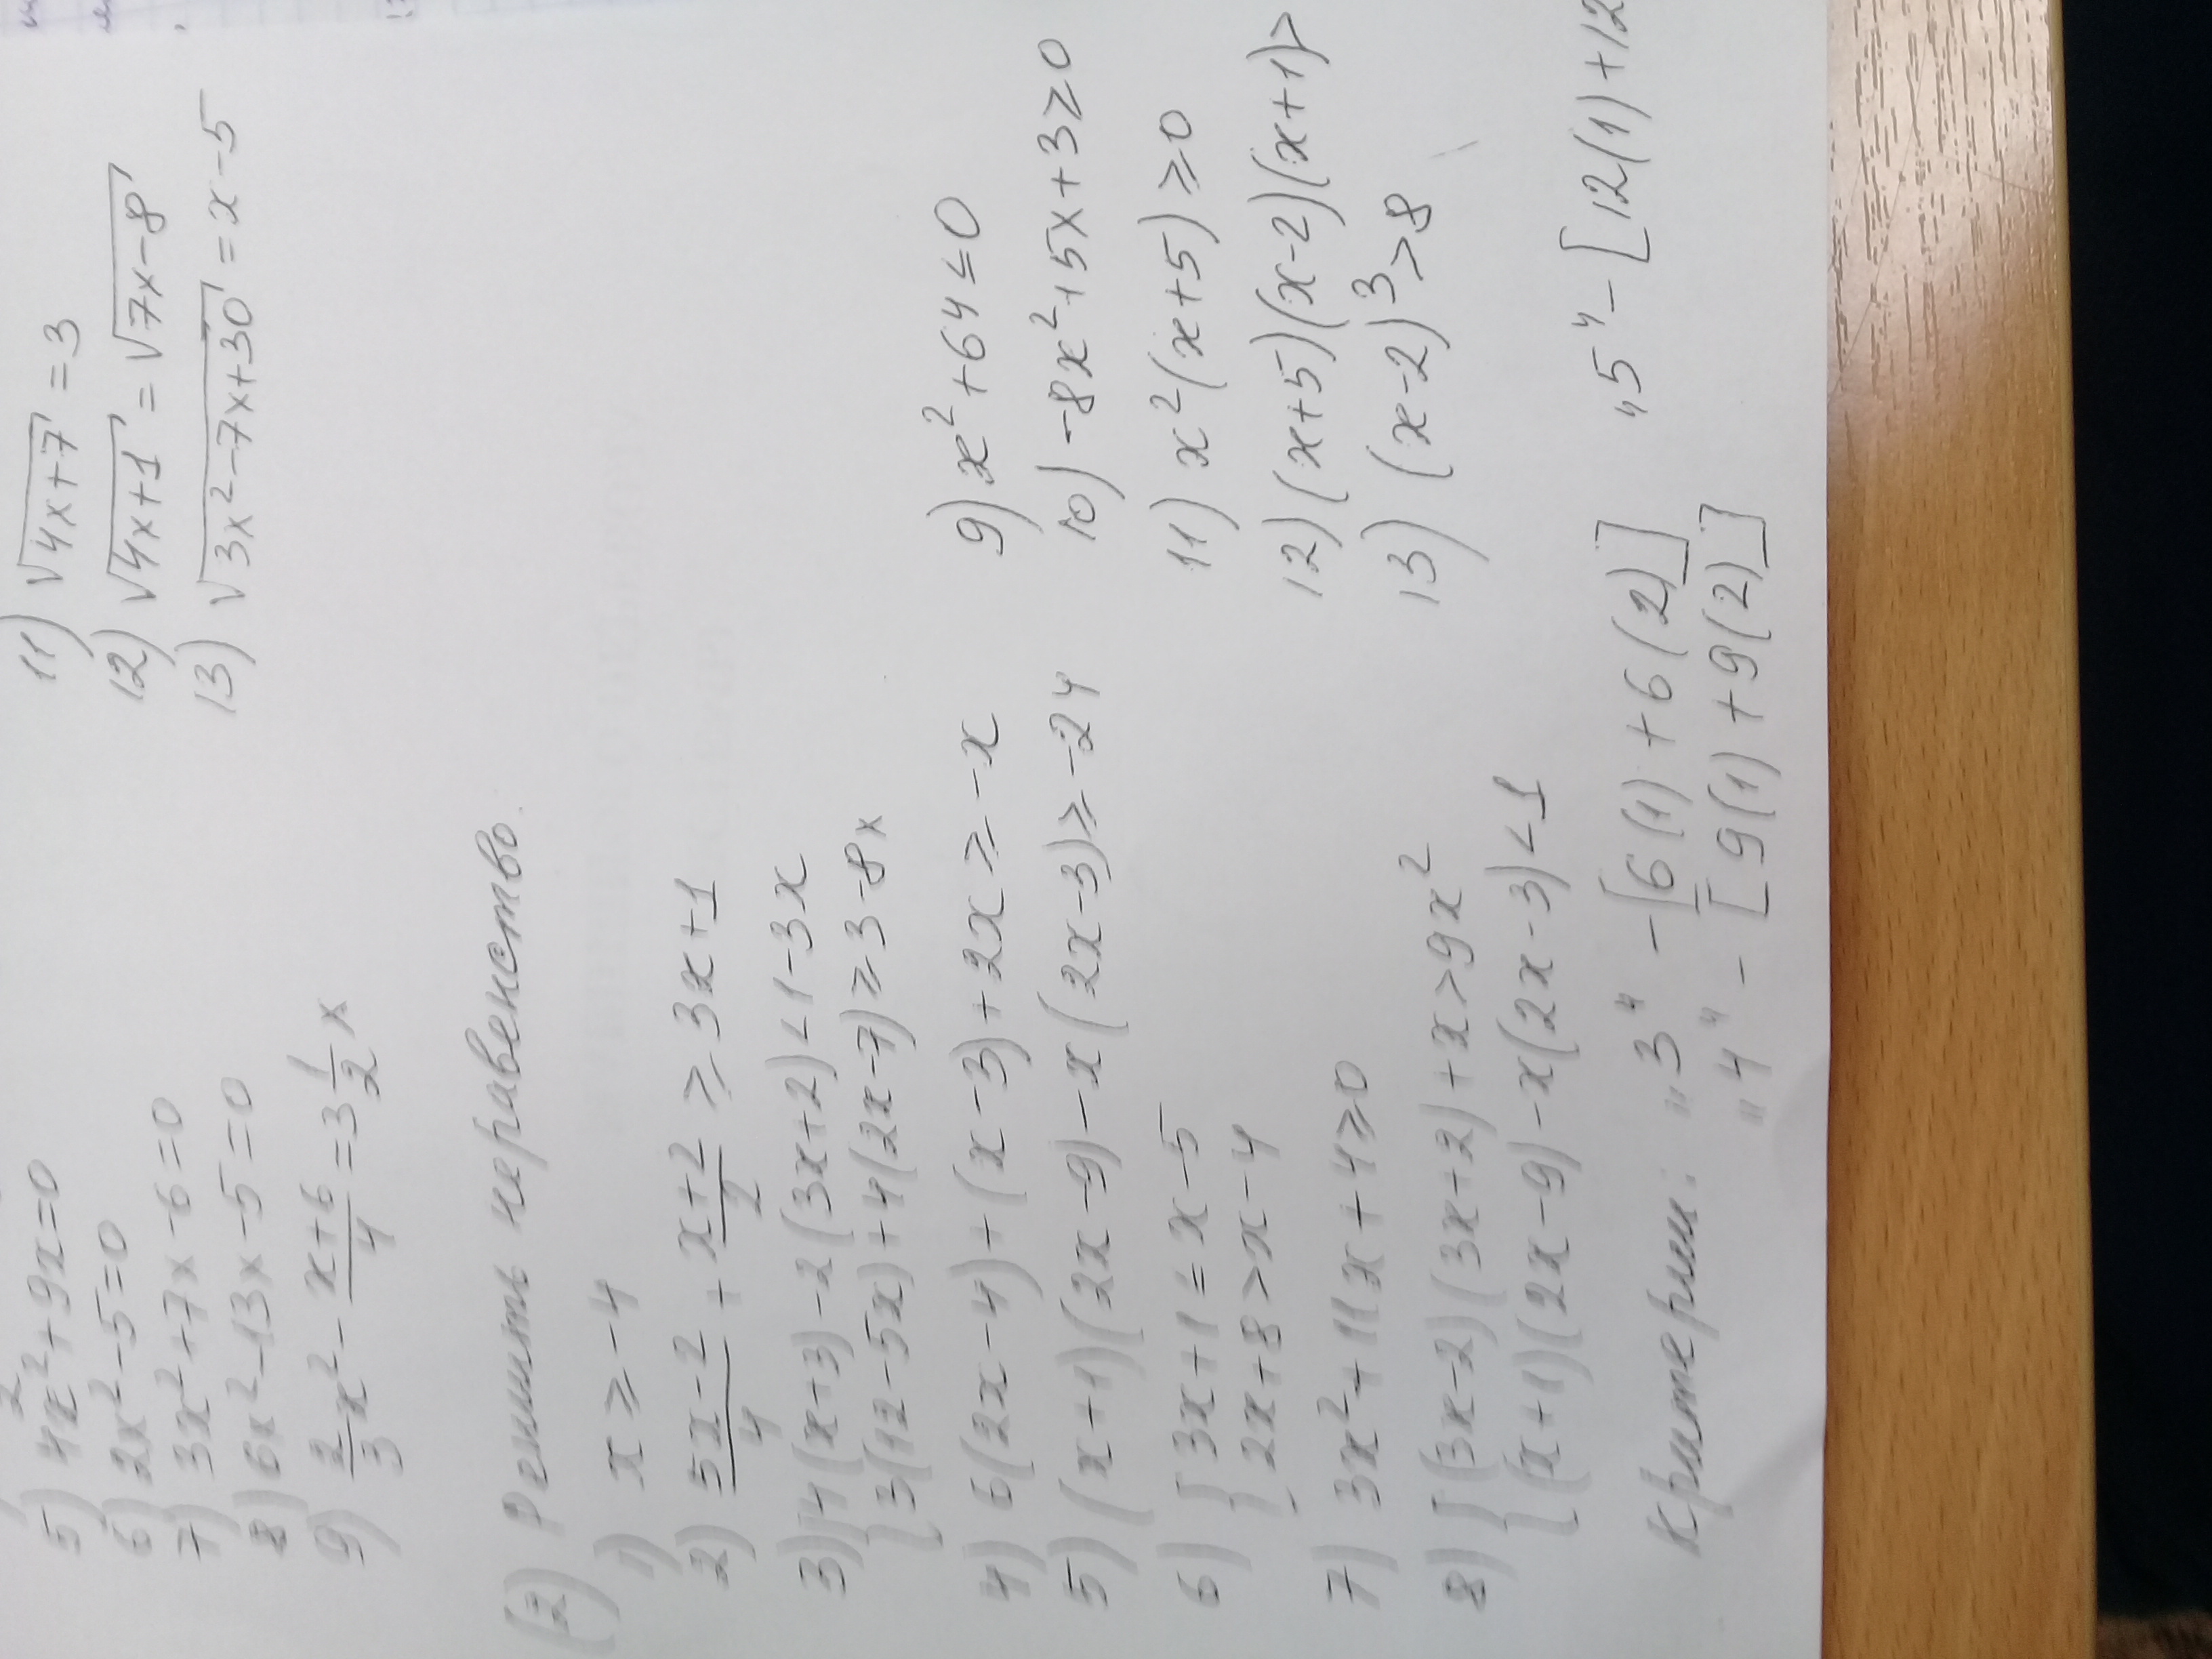 5) 4x² + 9x = 0
6) 2x² - 5 = 0
7) 3x² + 7x - 6 = 0
8) 6x² - 13x - 5 = 0
9) 2/3 x² - (x+6)/4 = 3 1/2 x
11) √(4x+7) = 3
12) √(4x+1) = √(7x-8)
13) √(3x²-7x+30) = x - 5
(2) Решить неравенство.
1) x ≥ -4
2) (5x-2)/4 + (x+2)/2 ≥ 3x+1
3) { 4(x+3) - 2(3x+2) < 1 - 3x
3(12-5x) + 4(2x-7) ≥ 3 - 8x
4) 6(2x-4) + (x-3) + 2x ≥ -x
5) (x+1)(2x-9) - x(2x-3) ≥ -24
6) { 3x+1 ≤ x-5
2x+8 > x-4
7) 3x² + 11x + 4 ≥ 0
8) { (3x-2)(3x+2) + x > 9x²
(x+1)(2x-9) - x(2x-3) < 1
9) x² + 64 ≤ 0
10) -8x² + 5x + 3 ≥ 0
11) x²(x+5) ≥ 0
12) (x+5)(x-2)(x+1) >
13) (x-2)³ > 8
Критерии: "3" - [6(1) + 6(2)]
"4" - [9(1) + 9(2)]
"5" - [12(1) + 12